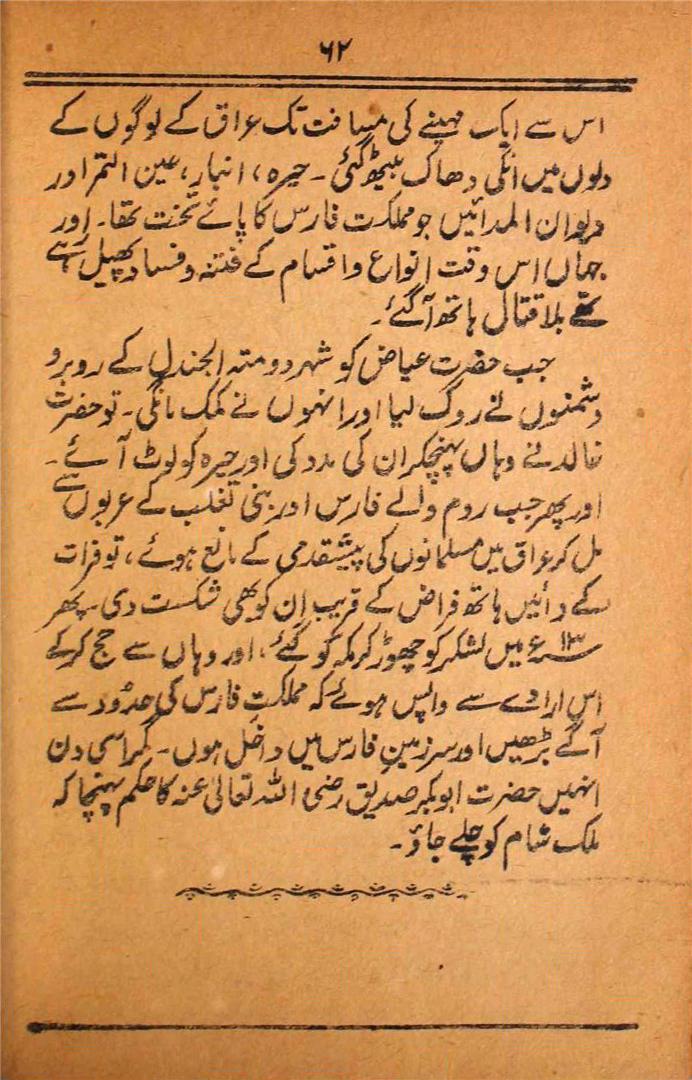 ۶۲
اس سے ایک مہینے کی مسافت تک عراق کے لوگوں کے
دلوں میں انکی دھاک بیٹھ گئی۔ حیرہ، انبار، عین التمر اور
دیوان المدائیں جو مملکت فارس کا پائے تخت تھا۔ اور
جہاں اس وقت انواع و اقسام کے فتنہ و فساد پھیل رہے
تھے بلا قتال ہاتھ آگئے۔
جب حضرت عیاض کو شہر دومتہ الجندل کے روبرو
دشمنوں نے روک لیا اور انہوں نے کمک مانگی۔ تو حضرت
خالد نے وہاں پہنچکر ان کی مدد کی اور حیرہ کو لوٹ آئے۔
اور پھر جب روم والے فارس اور بنی تغلب کے عربوں سے
مل کر عراق میں مسلمانوں کی پیشقدمی کے مانع ہوئے، تو فرات
کے دائیں ہاتھ فراض کے قریب ان کو بھی شکست دی۔ پھر
۱۳ء میں لشکر کو چھوڑ کر مکہ کو گئے، اور وہاں سے حج کرکے
اس ارادے سے واپس ہوئے کہ مملکتِ فارس کی حدود سے
آگے بڑھیں اور سرزمینِ فارس میں داخل ہوں۔ مگر اسی دن
انہیں حضرت ابوبکر صدیق رضی اللہ تعالیٰ عنہ کا حکم پہنچا کہ
ملک شام کو چلے جاؤ۔